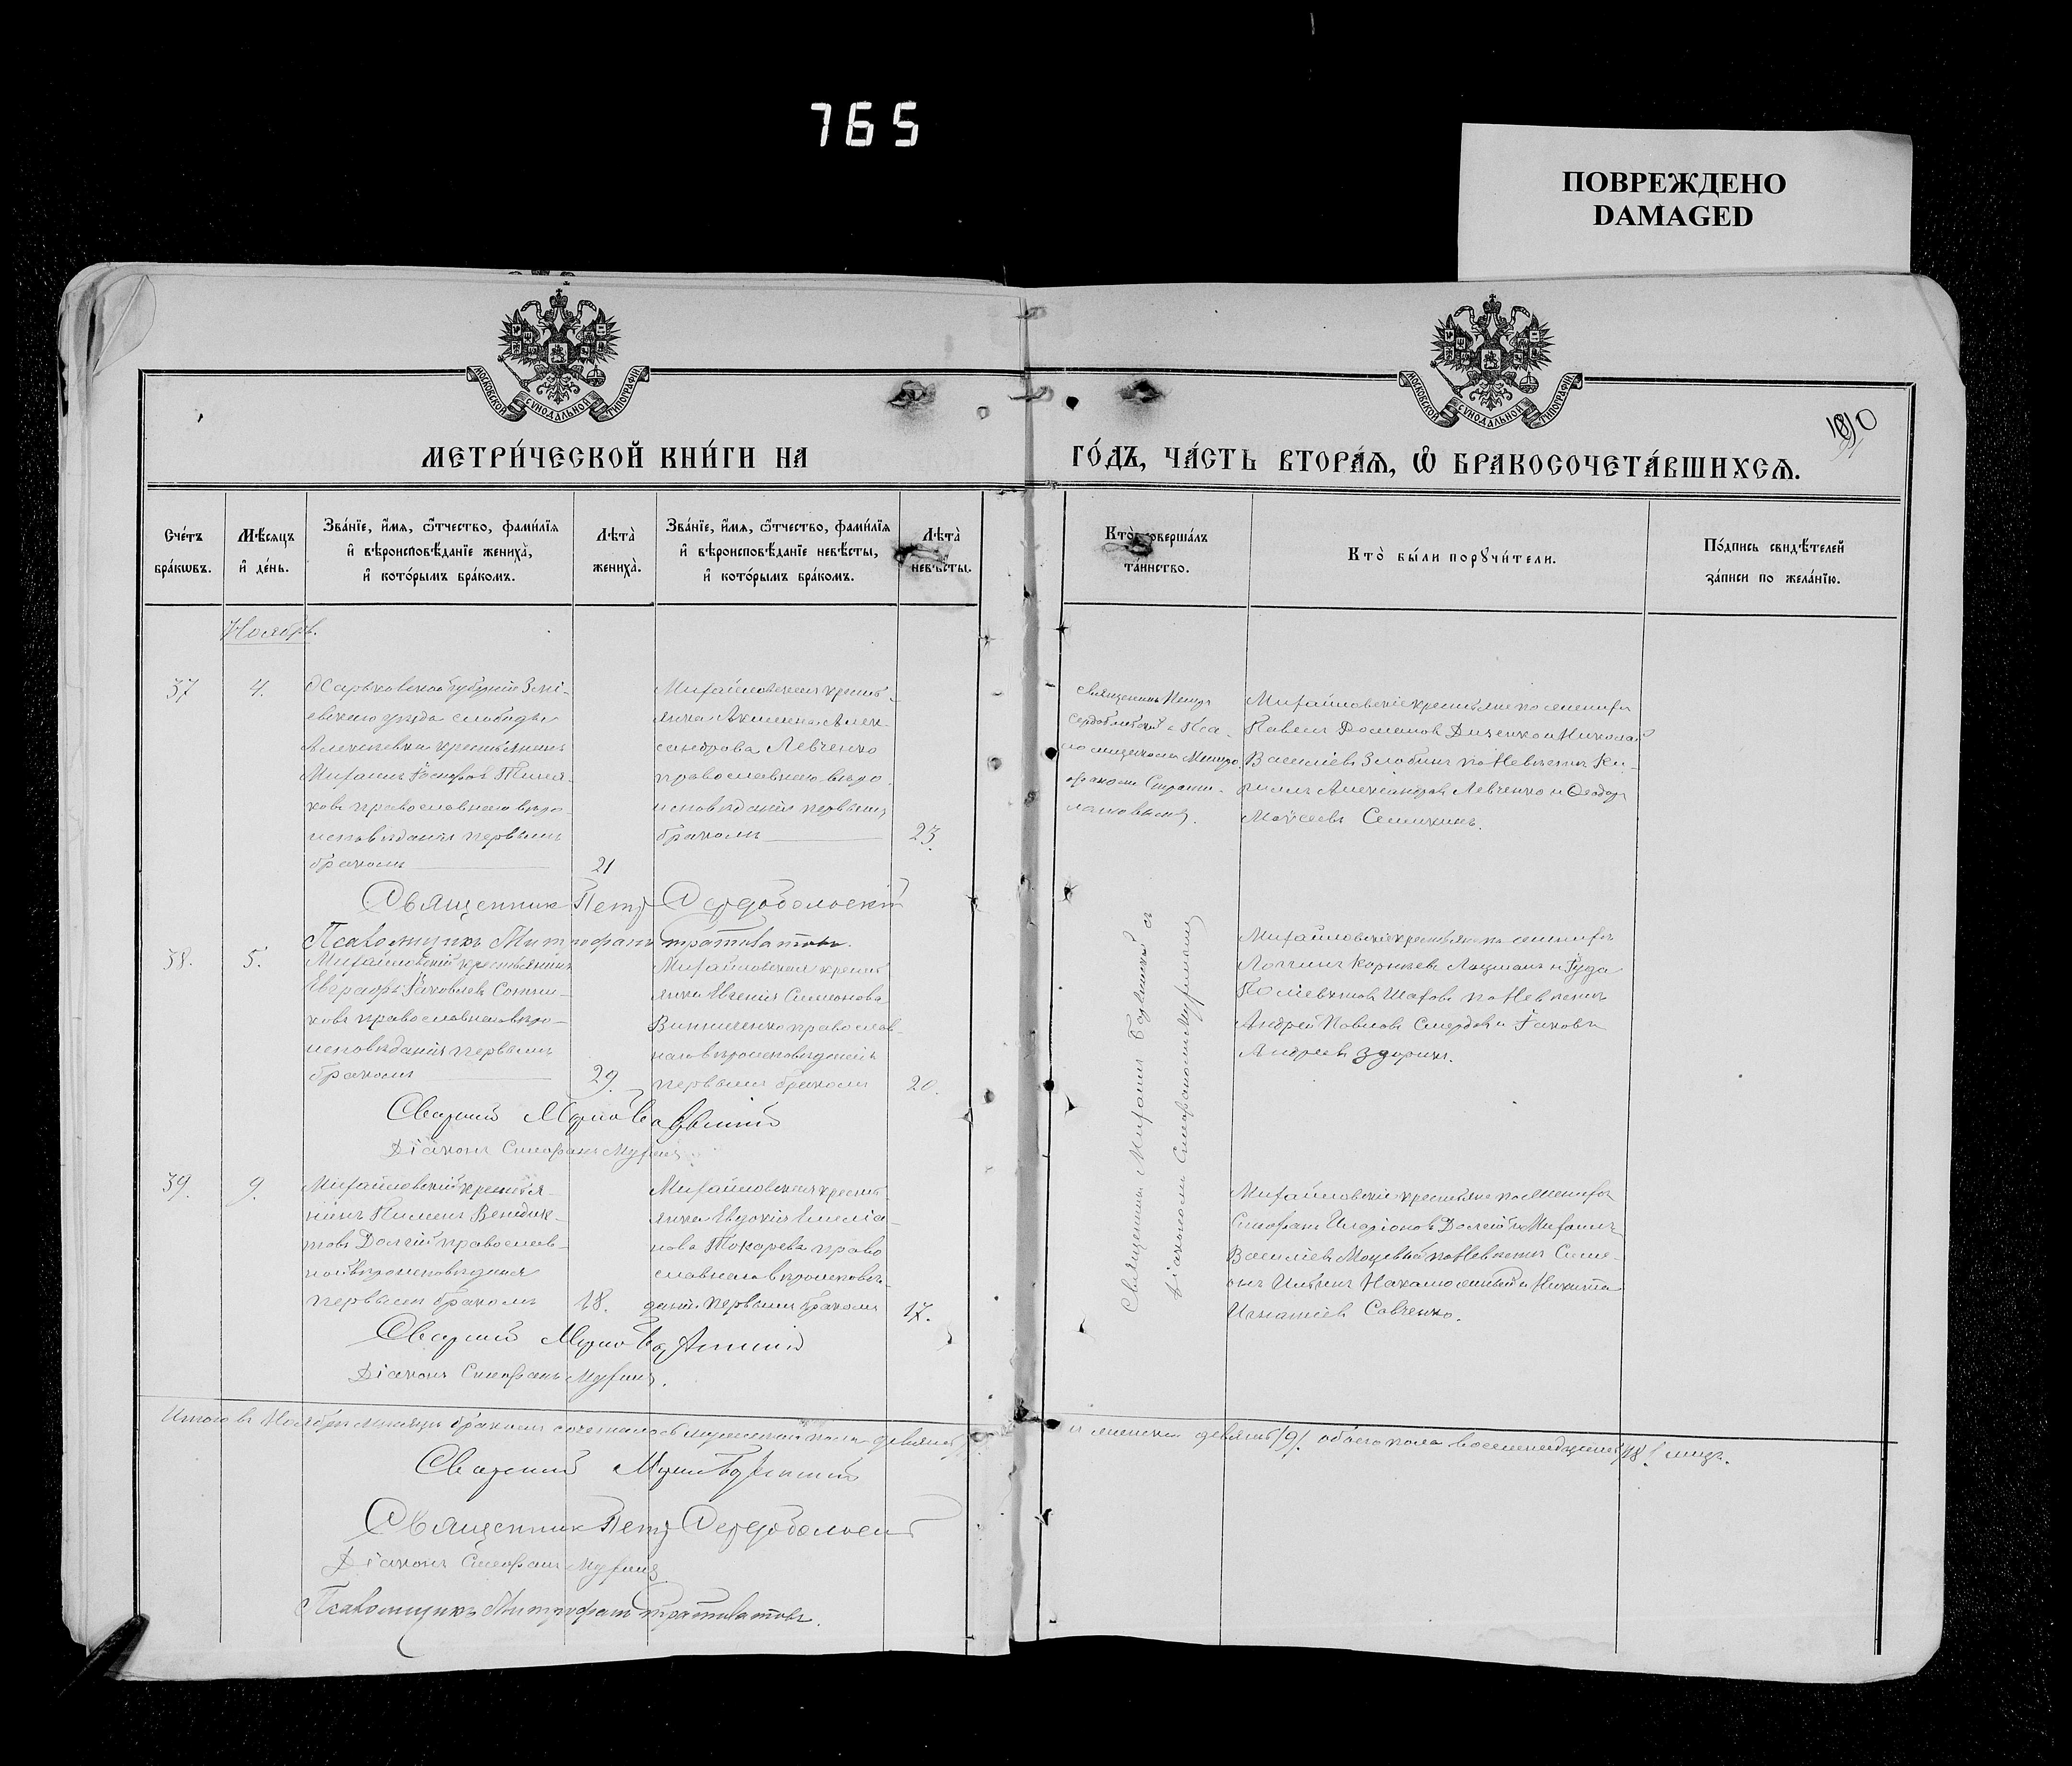 765
ПОВРЕЖДЕНО
DAMAGED
МОСКОВСКОЙ СУНОДАЛЬНОЙ ТИПОГРАФІИ
МОСКОВСКОЙ СУНОДАЛЬНОЙ ТИПОГРАФІИ
МЕТРИ́ЧЕСКОЙ КНИ́ГИ НА
ГО́ДЪ, ЧА́СТЬ ВТОРА́Ѧ, Ѽ БРАКОСОЧЕТА́ВШИХСѦ.
Сче́тъ
бра́кѡвъ.
Мѣ́сяцъ
и҆ де́нь.
Зва́нїе, и҆́мя, ѻ҆́тчество, фами́лїя
и҆ вѣроисповѣ́данїе жениха̀,
и҆ кото́рымъ бра́комъ.
Лѣта̀
жениха̀.
Зва́нїе, и҆́мя, ѻ҆́тчество, фами́лїя
и҆ вѣроисповѣ́данїе невѣ́сты,
и҆ кото́рымъ бра́комъ.
Лѣта̀
невѣ́сты.
Кто̀ соверша́лъ
та́инство.
Кто̀ бы́ли порꙋчи́тели.
По́дпись свидѣ́телей
за́писи по жела́нїю.
Ноябрь.
37
4.
Харьковской губерніи Змі-
евскаго уѣзда слободы
Алексѣевки крестьянинъ
Михаилъ
ковъ православнаго вѣро-
исповѣданія первымъ
бракомъ
21
Михайловская кресть-
янка Акилина Алек-
сандрова Левченко
православнаго вѣро
исповѣданія первымъ
бракомъ
23.
Священникъ Петръ
Сердобольскій с Пса-
ломщикомъ Митро
фаномъ
Михайловскіе крестьяне по женихѣ
Павелъ Доменовъ Диченко и Николай
Василіевъ Злобинъ по невѣстѣ Ки-
риллъ Александровъ Левченко и Ѳеодоръ
Моѵсеевъ Семикинъ.
Священникъ Петръ Сердобольскій
Псаломщикъ Митрофанъ
38.
5.
Михайловскій крестьянинъ
Евграфъ Іаковлевъ
ковъ православнаго вѣро-
исповѣданія первымъ
бракомъ
29.
Михайловская кресть
янка Евгенія Симеонова
Винниченко православ-
наго вѣроисповѣданія
первымъ бракомъ
20.
Священникъ Михаилъ съ
діакономъ Стефаномъ Мухинымъ
Михайловскіе крестьяне по женихѣ
Логгинъ Корнѣевъ Лоцманъ и Іуда
Шаховъ по невѣстѣ
Андрей Павловъ Смердовъ и Іаковъ
Андреевъ
Діаконъ Стефанъ Мухинъ
39.
9.
Михайловскій крестья-
нинъ Пименъ Венедик-
товъ Долгій православ-
ной вѣроисповѣданія
первымъ бракомъ
18.
Михайловская кресть
янка Евдокія Емеліа-
нова Токарева право
славнаго вѣроисповѣ-
данія первымъ бракомъ
17.
Михайловскіе крестьяне по женихѣ
Стефанъ Иларіоновъ Долгій и Михаилъ
Василіевъ по невѣстѣ Симе-
онъ Ильинъ и Никита
Игнатіевъ Савченко.
Діаконъ Стефанъ Мухинъ.
Итого въ Ноябрѣ мѣсяцѣ бракомъ сочеталось мужескаго пола девять
и женскаго девять /9/. обоего пола восемнадцать /18/ лицъ.
Священникъ Петръ Сердобольскій
Діаконъ Стефанъ Мухинъ
Псаломщикъ Митрофанъ